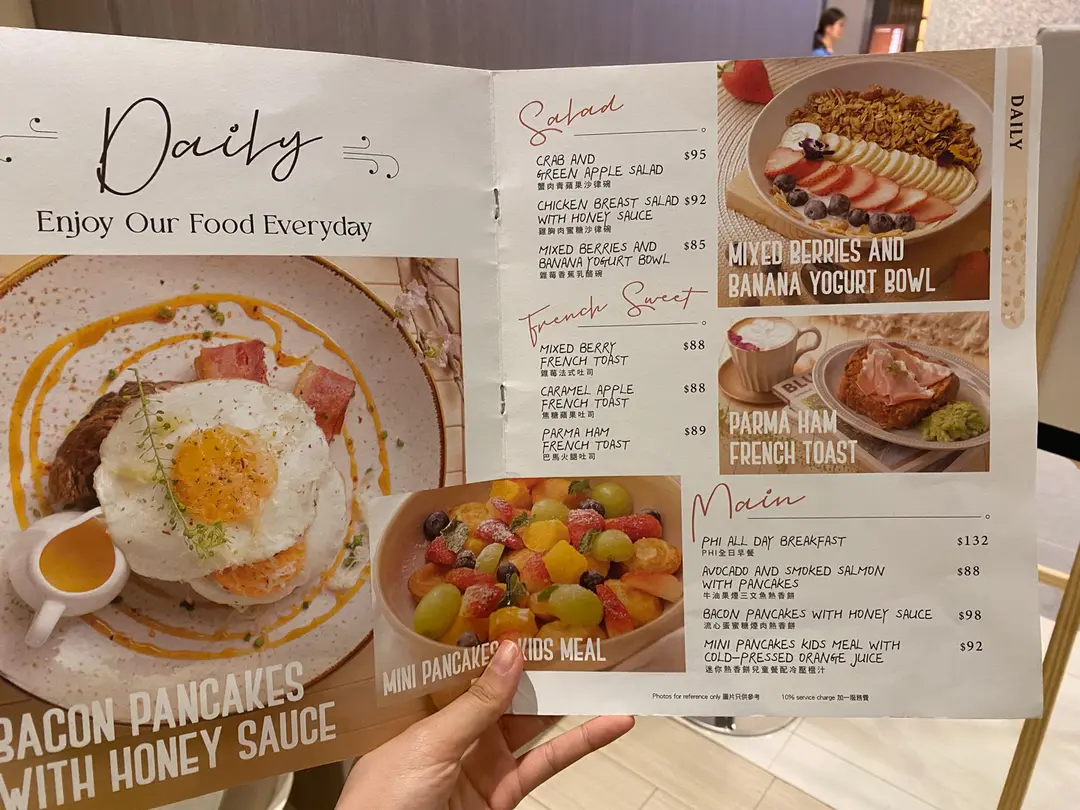 Daily
Enjoy Our Food Everyday
BACON PANCAKES
WITH HONEY SAUCE
Salad
CRAB AND $95
GREEN APPLE SALAD
蟹肉青蘋果沙律碗
CHICKEN BREAST SALAD $92
WITH HONEY SAUCE
雞胸肉蜜糖沙律碗
MIXED BERRIES AND $85
BANANA YOGURT BOWL
雜莓香蕉乳酪碗
French Sweet
MIXED BERRY $88
FRENCH TOAST
雜莓法式吐司
CARAMEL APPLE $88
FRENCH TOAST
焦糖蘋果吐司
PARMA HAM $89
FRENCH TOAST
巴馬火腿吐司
MINI PANCAKES KIDS MEAL
MIXED BERRIES AND
BANANA YOGURT BOWL
PARMA HAM
FRENCH TOAST
Main
PHI ALL DAY BREAKFAST $132
PHI全日早餐
AVOCADO AND SMOKED SALMON $88
WITH PANCAKES
牛油果煙三文魚熱香餅
BACON PANCAKES WITH HONEY SAUCE $98
流心蛋蜜糖煙肉熱香餅
MINI PANCAKES KIDS MEAL WITH $92
COLD-PRESSED ORANGE JUICE
迷你熱香餅兒童餐配冷壓橙汁
Photos for reference only 圖片只供參考 10% service charge 加一服務費
DAILY